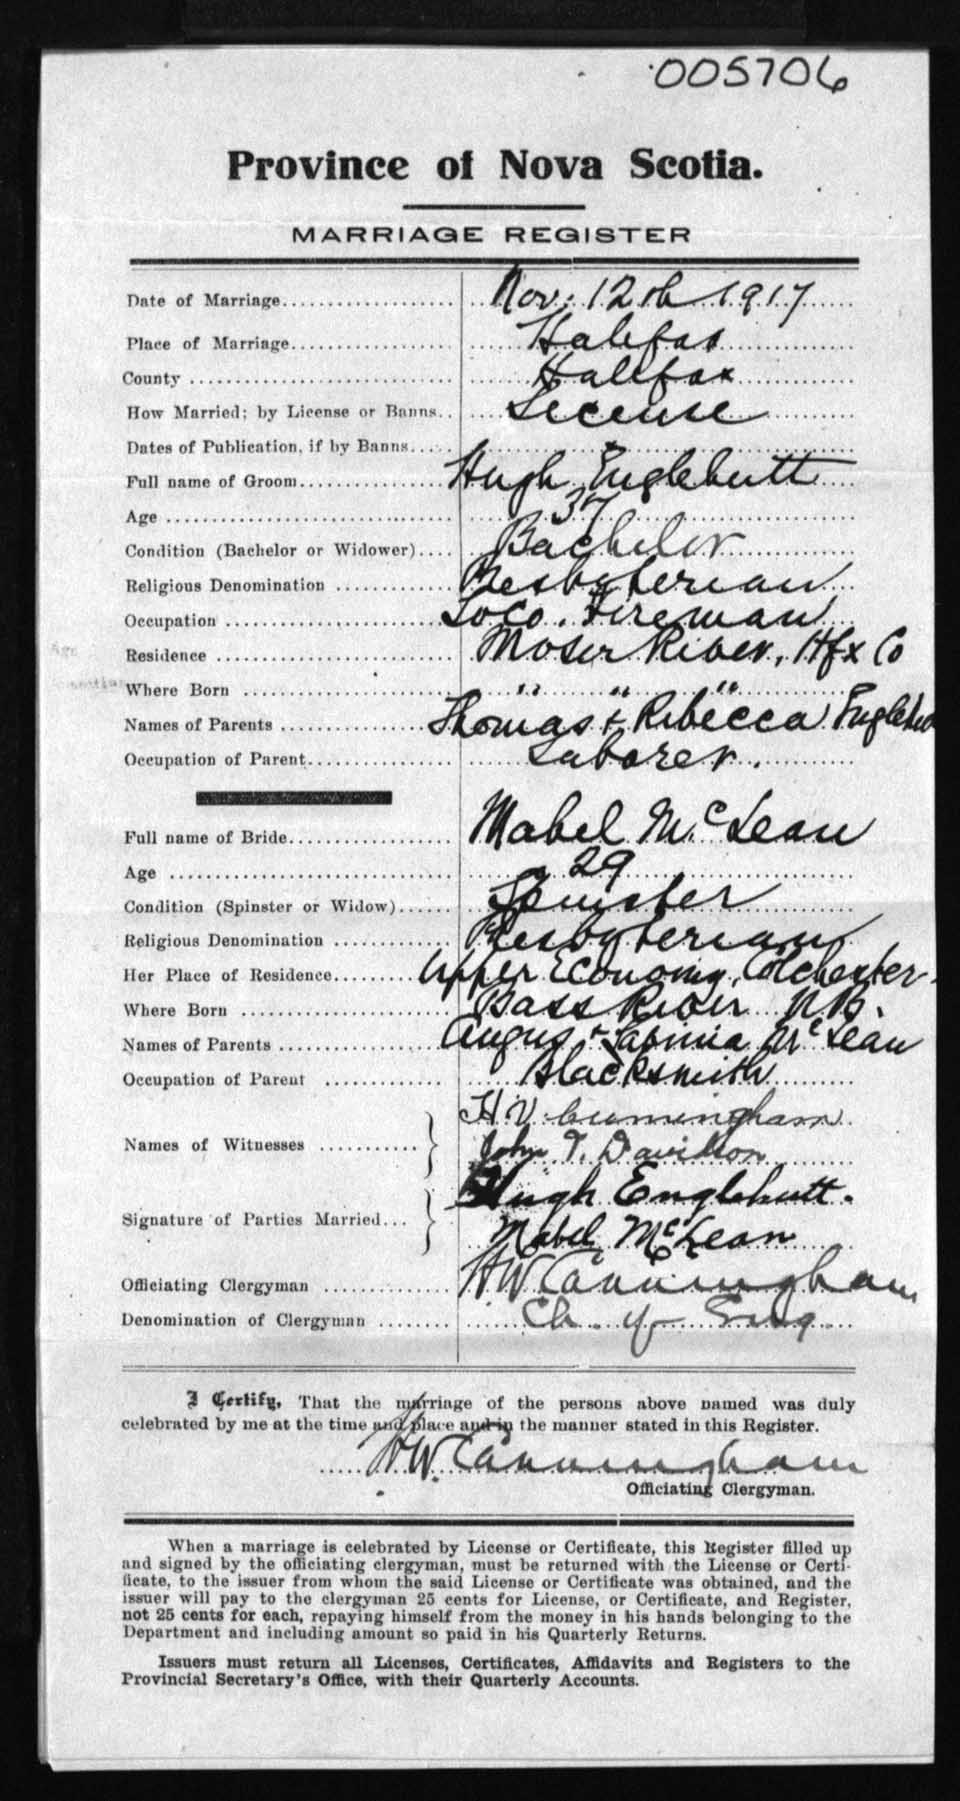 005706
Province of Nova Scotia.
MARRIAGE REGISTER
Date of Marriage Nov. 12th 1917
Place of Marriage Halifax
County Halifax
How Married; by License or Banns License
Dates of Publication, if by Banns
Full name of Groom Hugh Englehutt
Age 37
Condition (Bachelor or Widower) Bachelor
Religious Denomination Presbyterian
Occupation Loco. Fireman
Residence Moser River, Hfx Co
Where Born " " "
Names of Parents Thomas & Rebecca
Occupation of Parent Laborer.
Full name of Bride Mabel McLean
Age 29
Condition (Spinster or Widow) Spinster
Religious Denomination Presbyterian
Her Place of Residence Upper Economy, Colchester
Where Born Bass River N.B.
Names of Parents Angus & Lavinia McLean
Occupation of Parent Blacksmith
Names of Witnesses H V Cunningham
John T. Davidson
Signature of Parties Married Hugh Englehutt.
Mabel McLean
Officiating Clergyman H W Cunningham
Denomination of Clergyman Ch. of Eng
I Certify, That the marriage of the persons above named was duly
celebrated by me at the time and place and in the manner stated in this Register.
H W Cunningham
Officiating Clergyman.
When a marriage is celebrated by License or Certificate, this Register filled up
and signed by the officiating clergyman, must be returned with the License or Certi-
ficate, to the issuer from whom the said License or Certificate was obtained, and the
issuer will pay to the clergyman 25 cents for License, or Certificate, and Register,
not 25 cents for each, repaying himself from the money in his hands belonging to the
Department and including amount so paid in his Quarterly Returns.
Issuers must return all Licenses, Certificates, Affidavits and Registers to the
Provincial Secretary's Office, with their Quarterly Accounts.